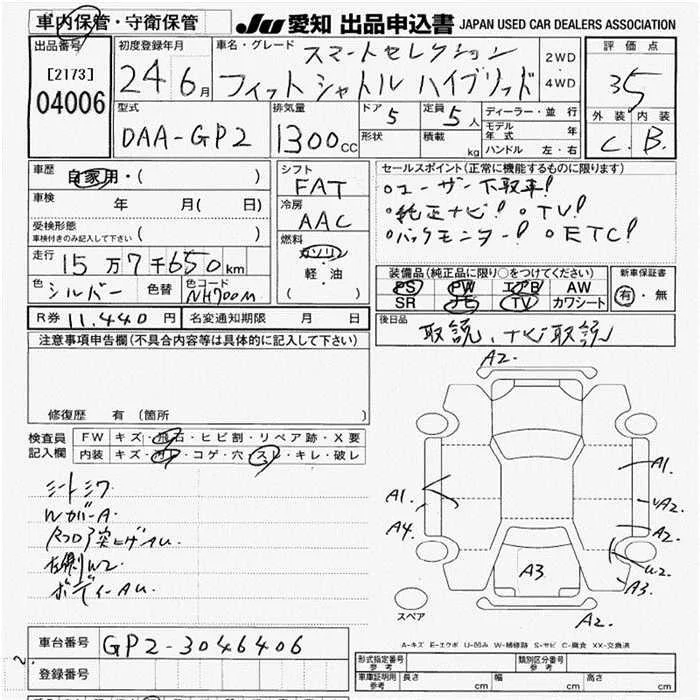 車内保管・守衛保管
JU 愛知 出品申込書 JAPAN USED CAR DEALERS ASSOCIATION
出品番号 [2173] 04006
初度登録年月 24年 6月
車名・グレード スマートセレクション
フィットシャトルハイブリッド
2WD・4WD
評価点 35
外装 内装
C. B.
型式 DAA-GP2
排気量 1300cc
ドア 5
形状
定員 5人
積載 kg
ディーラー・並行
モデル年式 年
ハンドル 左・右
車歴 自家用・( )
車検 年 月( 日)
受検形態 ( )
車検付きのみ記入して下さい
走行 15万7千650km
色 シルバー 色替 色コード NH700M
シフト FAT
冷房 AAC
燃料 ガソリン 軽・油 ( )
セールスポイント(正常に機能するものに限ります)
○ユーザー下取車!
○純正ナビ! ○TV!
○バックモニター! ○ETC!
装備品(純正品に限り○をつけてください)
PS PW エアB AW
SR ナビ TV カワシート
新車保証書 有・無
R券 11.440円 名変通知期限 月 日
後日品 取説、ナビ取説
注意事項申告欄(不具合内容等は具体的に記入して下さい)
修復歴 有 (箇所
検査員記入欄
FW キズ・飛石・ヒビ割・リペア跡・X要
内装 キズ・コゲ・穴・スレ・キレ・破レ
シートシワ
WガバーA
左側W2
ボディーAU
A2.
A1.
A4.
A1.
A2.
A2.
W2
A3.
A3
A2.
スペア
A-キズ E-エクボ U-凹み W-補修跡 S-サビ C-腐食 XX-交換済
車台番号 GP2-3046406
登録番号
形式指定番号 参考
類別区分番号 参考
車庫証明用 参考 長さ cm 幅 cm 高さ cm